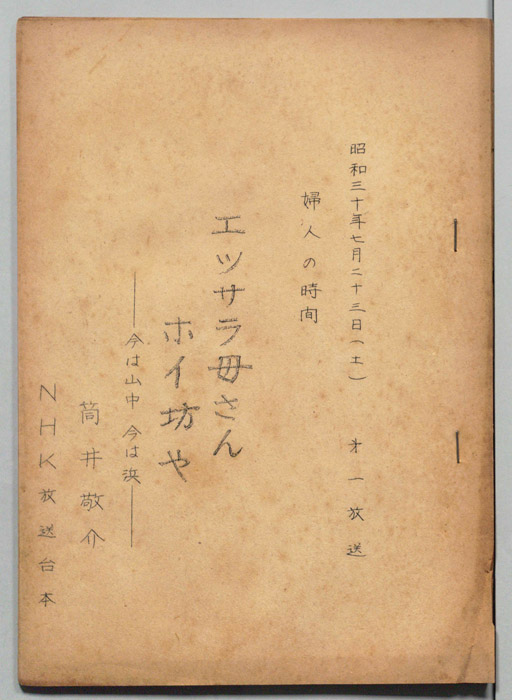 昭和三十年七月二十三日(土) 才一放送
婦人の時間
エッサラ母さん
ホイ坊や
――今は山中 今は浜――
筒井敬介
NHK放送台本